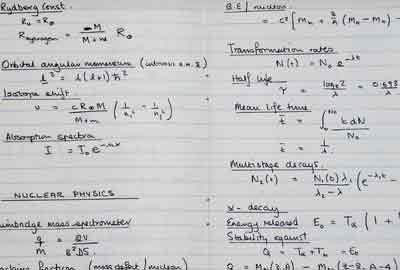 Rydberg Const.
R₀ = R∞
R hydrogen = ∞M / M+m R∞
Orbital angular momentum (intrinsic
l² = l(l+1)ħ²
Isotope shift.
υ = cR∞M / M+m (1/n₁² − 1/n₂²)
Absorption spectra
I = I₀e^-nσx
NUCLEAR PHYSICS
mass spectrometer
q/m = 2V / B²DS
fraction (mass defect / nucleon)
B.E / nucleon
= c² [Mn + (Mn − Mn) −
Transformation rates.
N(t) = N₀ e^-λt
Half life
τ = loge2 / λ = 0.693
Mean life time
t̄ = ∫₀^N₀ t dN / N₀
t̄ = 1/λ
Multistage decays.
N₂(t) = N₁(0)λ₁ / λ₂ − λ₁ (e^-λ₁t −
α - decay
Energy released E₀ = Tα (1 +
Stability against
Q = Tα + Tb = E₀